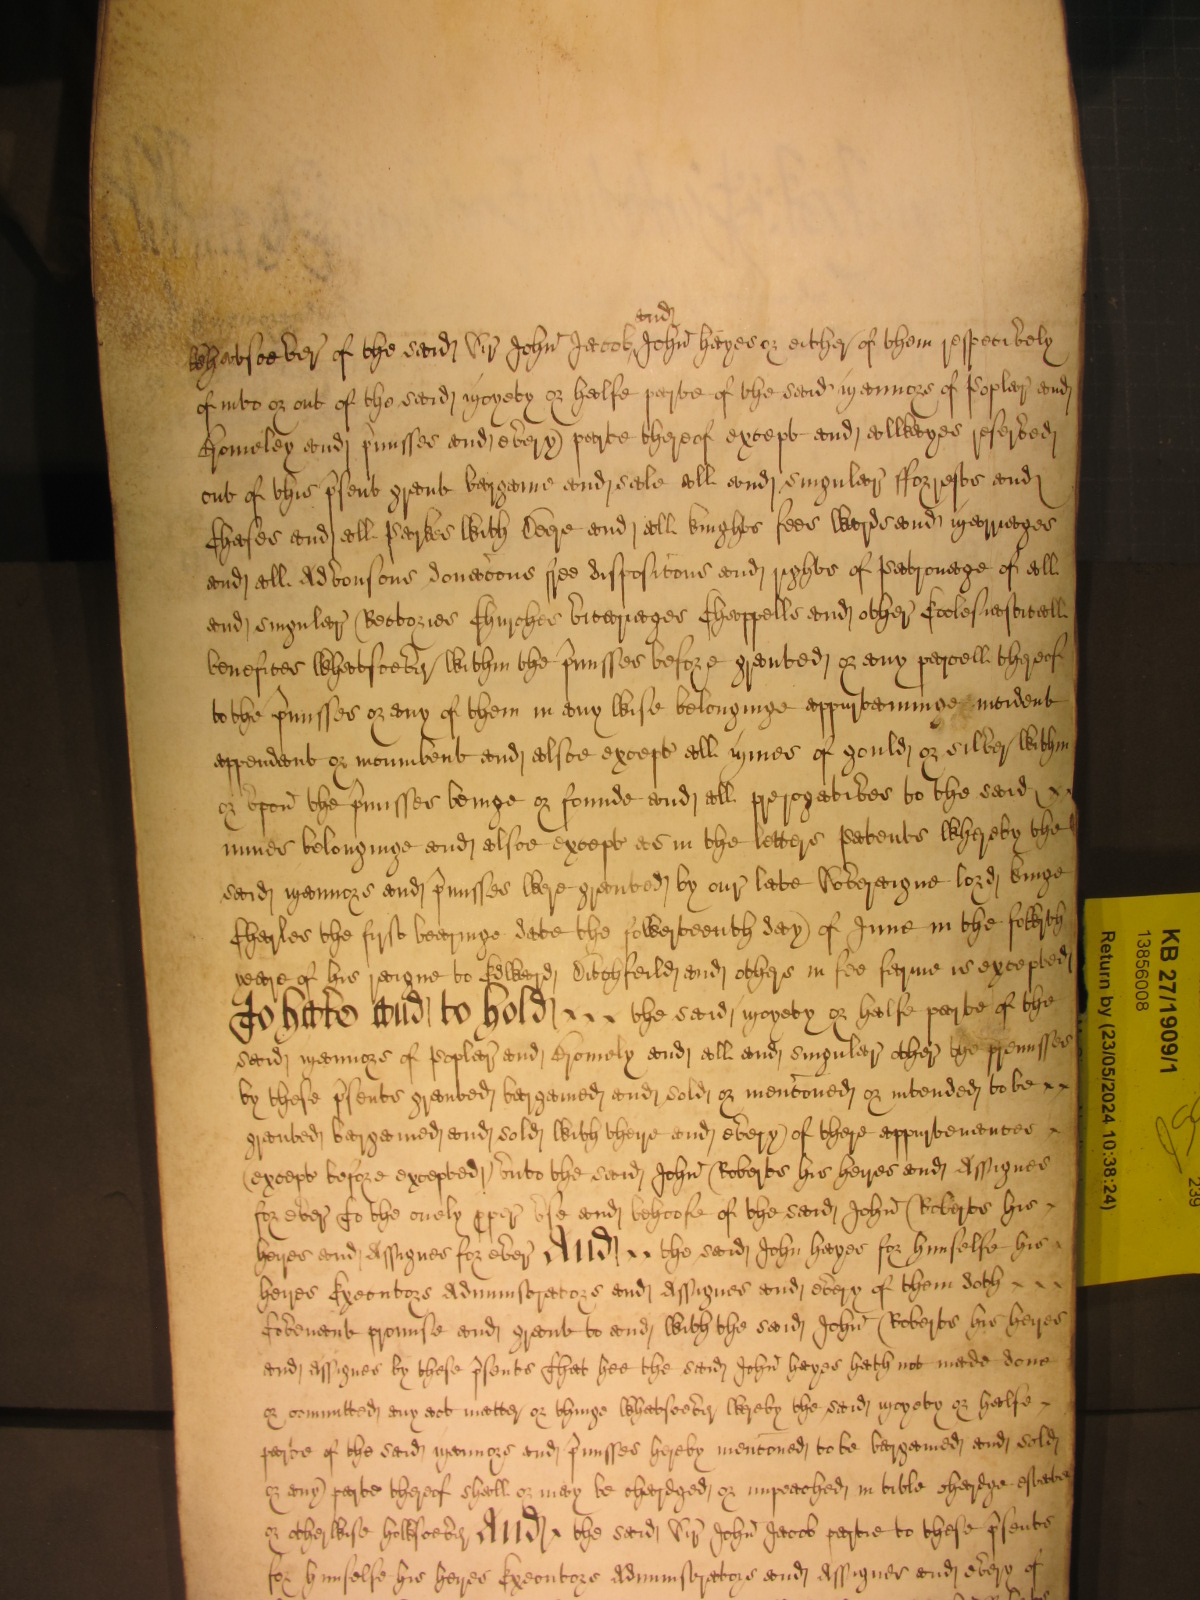 and
whatsoever of the said Sir John Jacob John Hayes or either of them respectively
of into or out of the said moyety or halfe parte of the said mannors of Poplar and
Bromeley and p̄misses and every parte thereof except and allwayes reserved
out of this p̄sent graunt bargaine and sale all and singular fforrests and
Chases and all Parkes with Deere and all knights fees wards and marriages
and all Advousons donac̄ons free disposic̄ons and rights of Patronage of all
and singular Rectories Churches vicariages Chappells and other Ecclesiasticall
benefices whatsoever within the p̄misses before graunted or any parcell thereof
to the p̄misses or any of them in any wise belonginge appurtaininge incident
appendant or incumbent and alsoe except all mines of gould or silver within
or upon the p̄misses beinge or founde and all prerogatives to the said
mines belonginge and alsoe except as in the letters Patents whereby the
said mannors and p̄misses were graunted by our late Soveraigne lord kinge
Charles the first bearinge date the fowerteenth day of June in the fowrth
yeare of his raigne to Edward Ditchfeild and others in fee farme is excepted
To have and to hold the said moyety or halfe parte of the
said mannors of Poplar and Bromely and all and singular other the premisses
by these p̄sents graunted bargained and sold or menc̄oned or intended to be
graunted bargained and sold with there and every of there appurtenances
(except before excepted) unto the said John Roberts his heires and Assignes
for ever To the onely ꝓper use and behoofe of the said John Roberts his
heires and Assignes for ever And the said John Hayes for himselfe his
heires Executors Administrators and Assignes and every of them doth
Covenant promise and graunt to and with the said John Roberts his heires
and Assignes by these p̄sents That hee the said John Hayes hath not made done
or committed any act matter or thinge whatsoever wereby the said moyety or halfe
parte of the said mannors and p̄misses hereby menc̄oned to be bargained and sold
or any parte thereof shall or may be chardged or impeached in title chardge estate
or otherwise howsoever And the said Sir John Jacob partie to these p̄sents
for himselfe his heires Executors Administrators and Assignes and every of
KB 27/1909/1
13856008
Return by (23/05/2024 10:38:24)
239